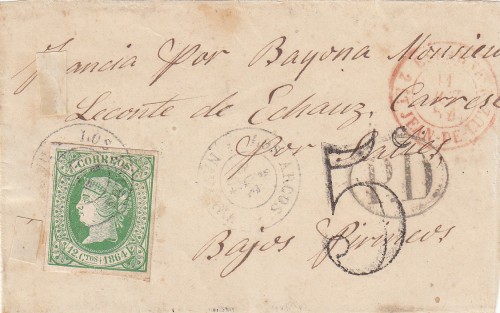 Francia Por Bayona Monsieur
Leconte de Echauz, Carrese
Por Salies
Bajos Pirineos
LOS
CORREOS
12 CTOS 1864
LOS ARCOS
NAVARRA
5
P.D.
2
ST JEAN-DE-LUZ